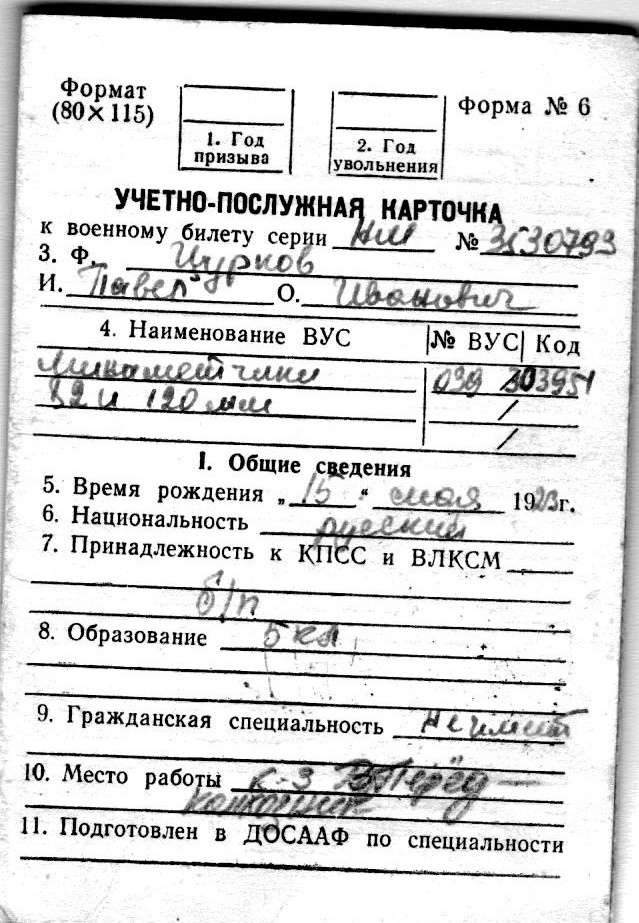 Формат
(80×115)
Форма № 6
1. Год
призыва
2. Год
увольнения
УЧЕТНО-ПОСЛУЖНАЯ КАРТОЧКА
к военному билету серии НМ № 3530793
3. Ф. Цурков
И. Павел О. Иванович
4. Наименование ВУС № ВУС Код
минометчики 039 303951
82 и 120 мм /
/
I. Общие сведения
5. Время рождения „15“ мая 1923г.
6. Национальность русский
7. Принадлежность к КПСС и ВЛКСМ
б/п
8. Образование 5 кл
9. Гражданская специальность не имеет
10. Место работы к-з Вперёд —
колхозник
11. Подготовлен в ДОСААФ по специальности